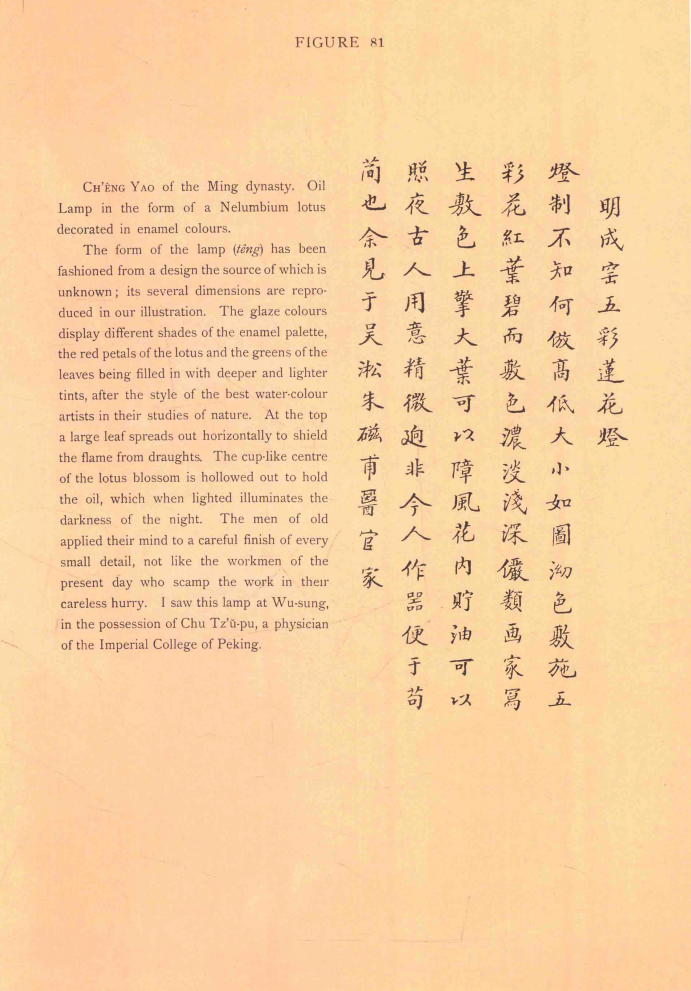 FIGURE 81
CH'ÊNG YAO of the Ming dynasty. Oil
Lamp in the form of a Nelumbium lotus
decorated in enamel colours.
The form of the lamp (têng) has been
fashioned from a design the source of which is
unknown; its several dimensions are repro-
duced in our illustration. The glaze colours
display different shades of the enamel palette,
the red petals of the lotus and the greens of the
leaves being filled in with deeper and lighter
tints, after the style of the best water-colour
artists in their studies of nature. At the top
a large leaf spreads out horizontally to shield
the flame from draughts. The cup-like centre
of the lotus blossom is hollowed out to hold
the oil, which when lighted illuminates the
darkness of the night. The men of old
applied their mind to a careful finish of every
small detail, not like the workmen of the
present day who scamp the work in their
careless hurry. I saw this lamp at Wu-sung,
in the possession of Chu Tz'ŭ-pu, a physician
of the Imperial College of Peking.
明成窑五彩蓮花燈
燈制不知何倣髙低大小如圖泑色敷施五
彩花紅葉碧而敷色濃淡淺深儼類画家寫
生敷色上擎大葉可以障風花内貯油可以
照夜古人用意精微逈非今人作器便于苟
蕳也余見于吴淞朱磁甫醫官家